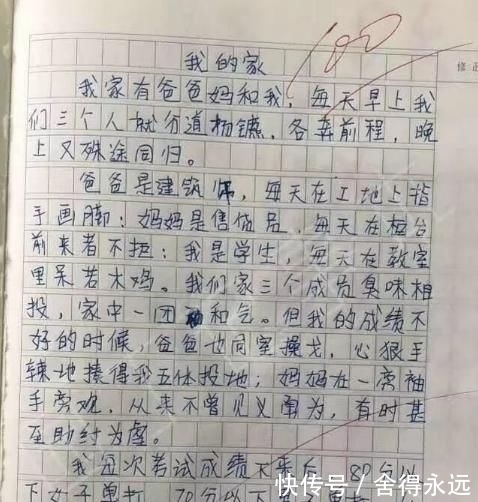 100
修正
我的家
我家有爸爸妈和我，每天早上我
们三个人就分道扬镳，各奔前程，晚
上又殊途同归。
爸爸是建筑师，每天在工地上指
手画脚；妈妈是售货员，每天在柜台
前来者不拒；我是学生，每天在教室
里呆若木鸡。我们家三个成员臭味相
投，家中一团和气。但我的成绩不
好的时候，爸爸也同室操戈，心狠手
辣地揍得我五体投地；妈妈在一旁袖
手旁观，从来不曾见义勇为，有时甚
至助纣为虐。
我每次考试成绩下来后，80分以
下女子单打，70分以下
快传号/舍得永远